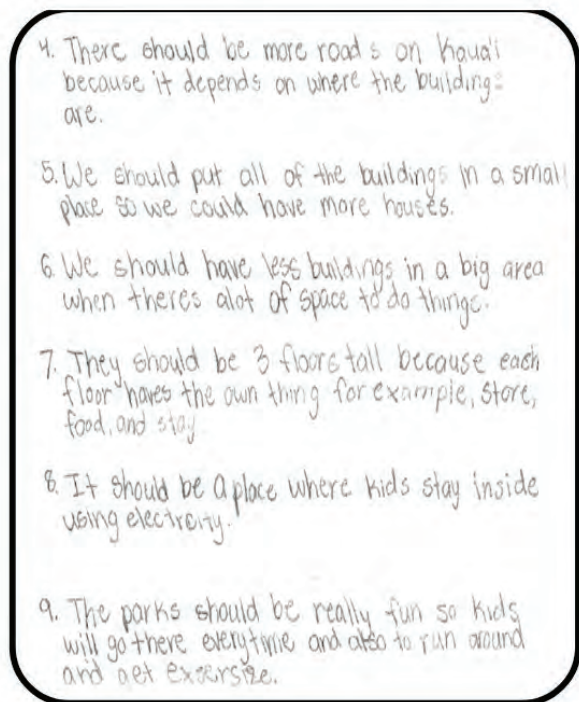 4. There should be more roads on Kaua'i
because it depends on where the buildings
are.
5. We should put all of the buildings in a small
place so we could have more houses.
6. We should have less buildings in a big area
when theres alot of space to do things.
7. They should be 3 floors tall because each
floor haves the own thing for example, store,
food, and stay
8. It should be a place where kids stay inside
using electrcity.
9. The parks should be really fun so kids
will go there everytime and also to run around
and get excersize.